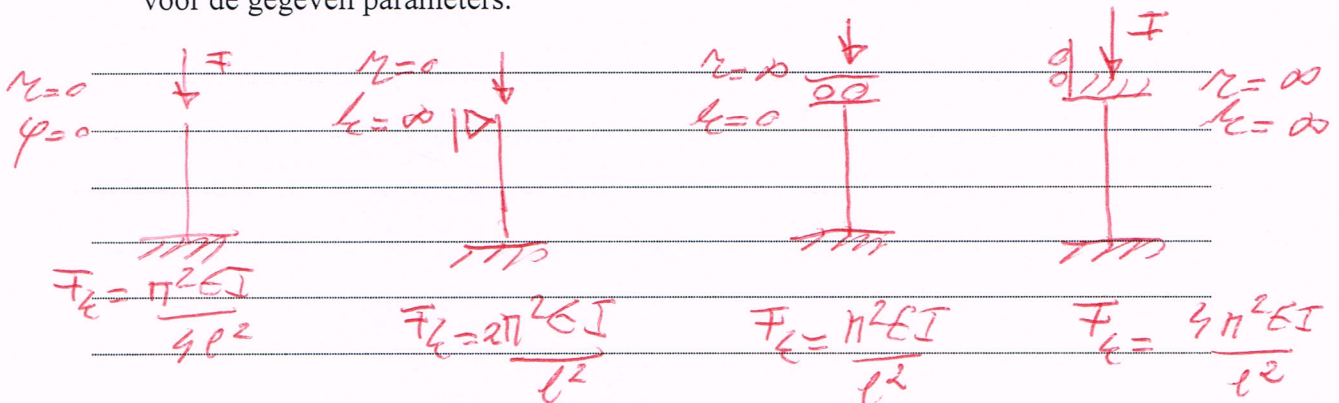 voor de gegeven parameters.
F
F
r=0
φ=0
r=0
k=∞
r=∞
k=0
r=∞
k=∞
F_k = π²EI / 4ℓ²
F_k = 2π²EI / ℓ²
F_k = π²EI / ℓ²
F_k = 4π²EI / ℓ²